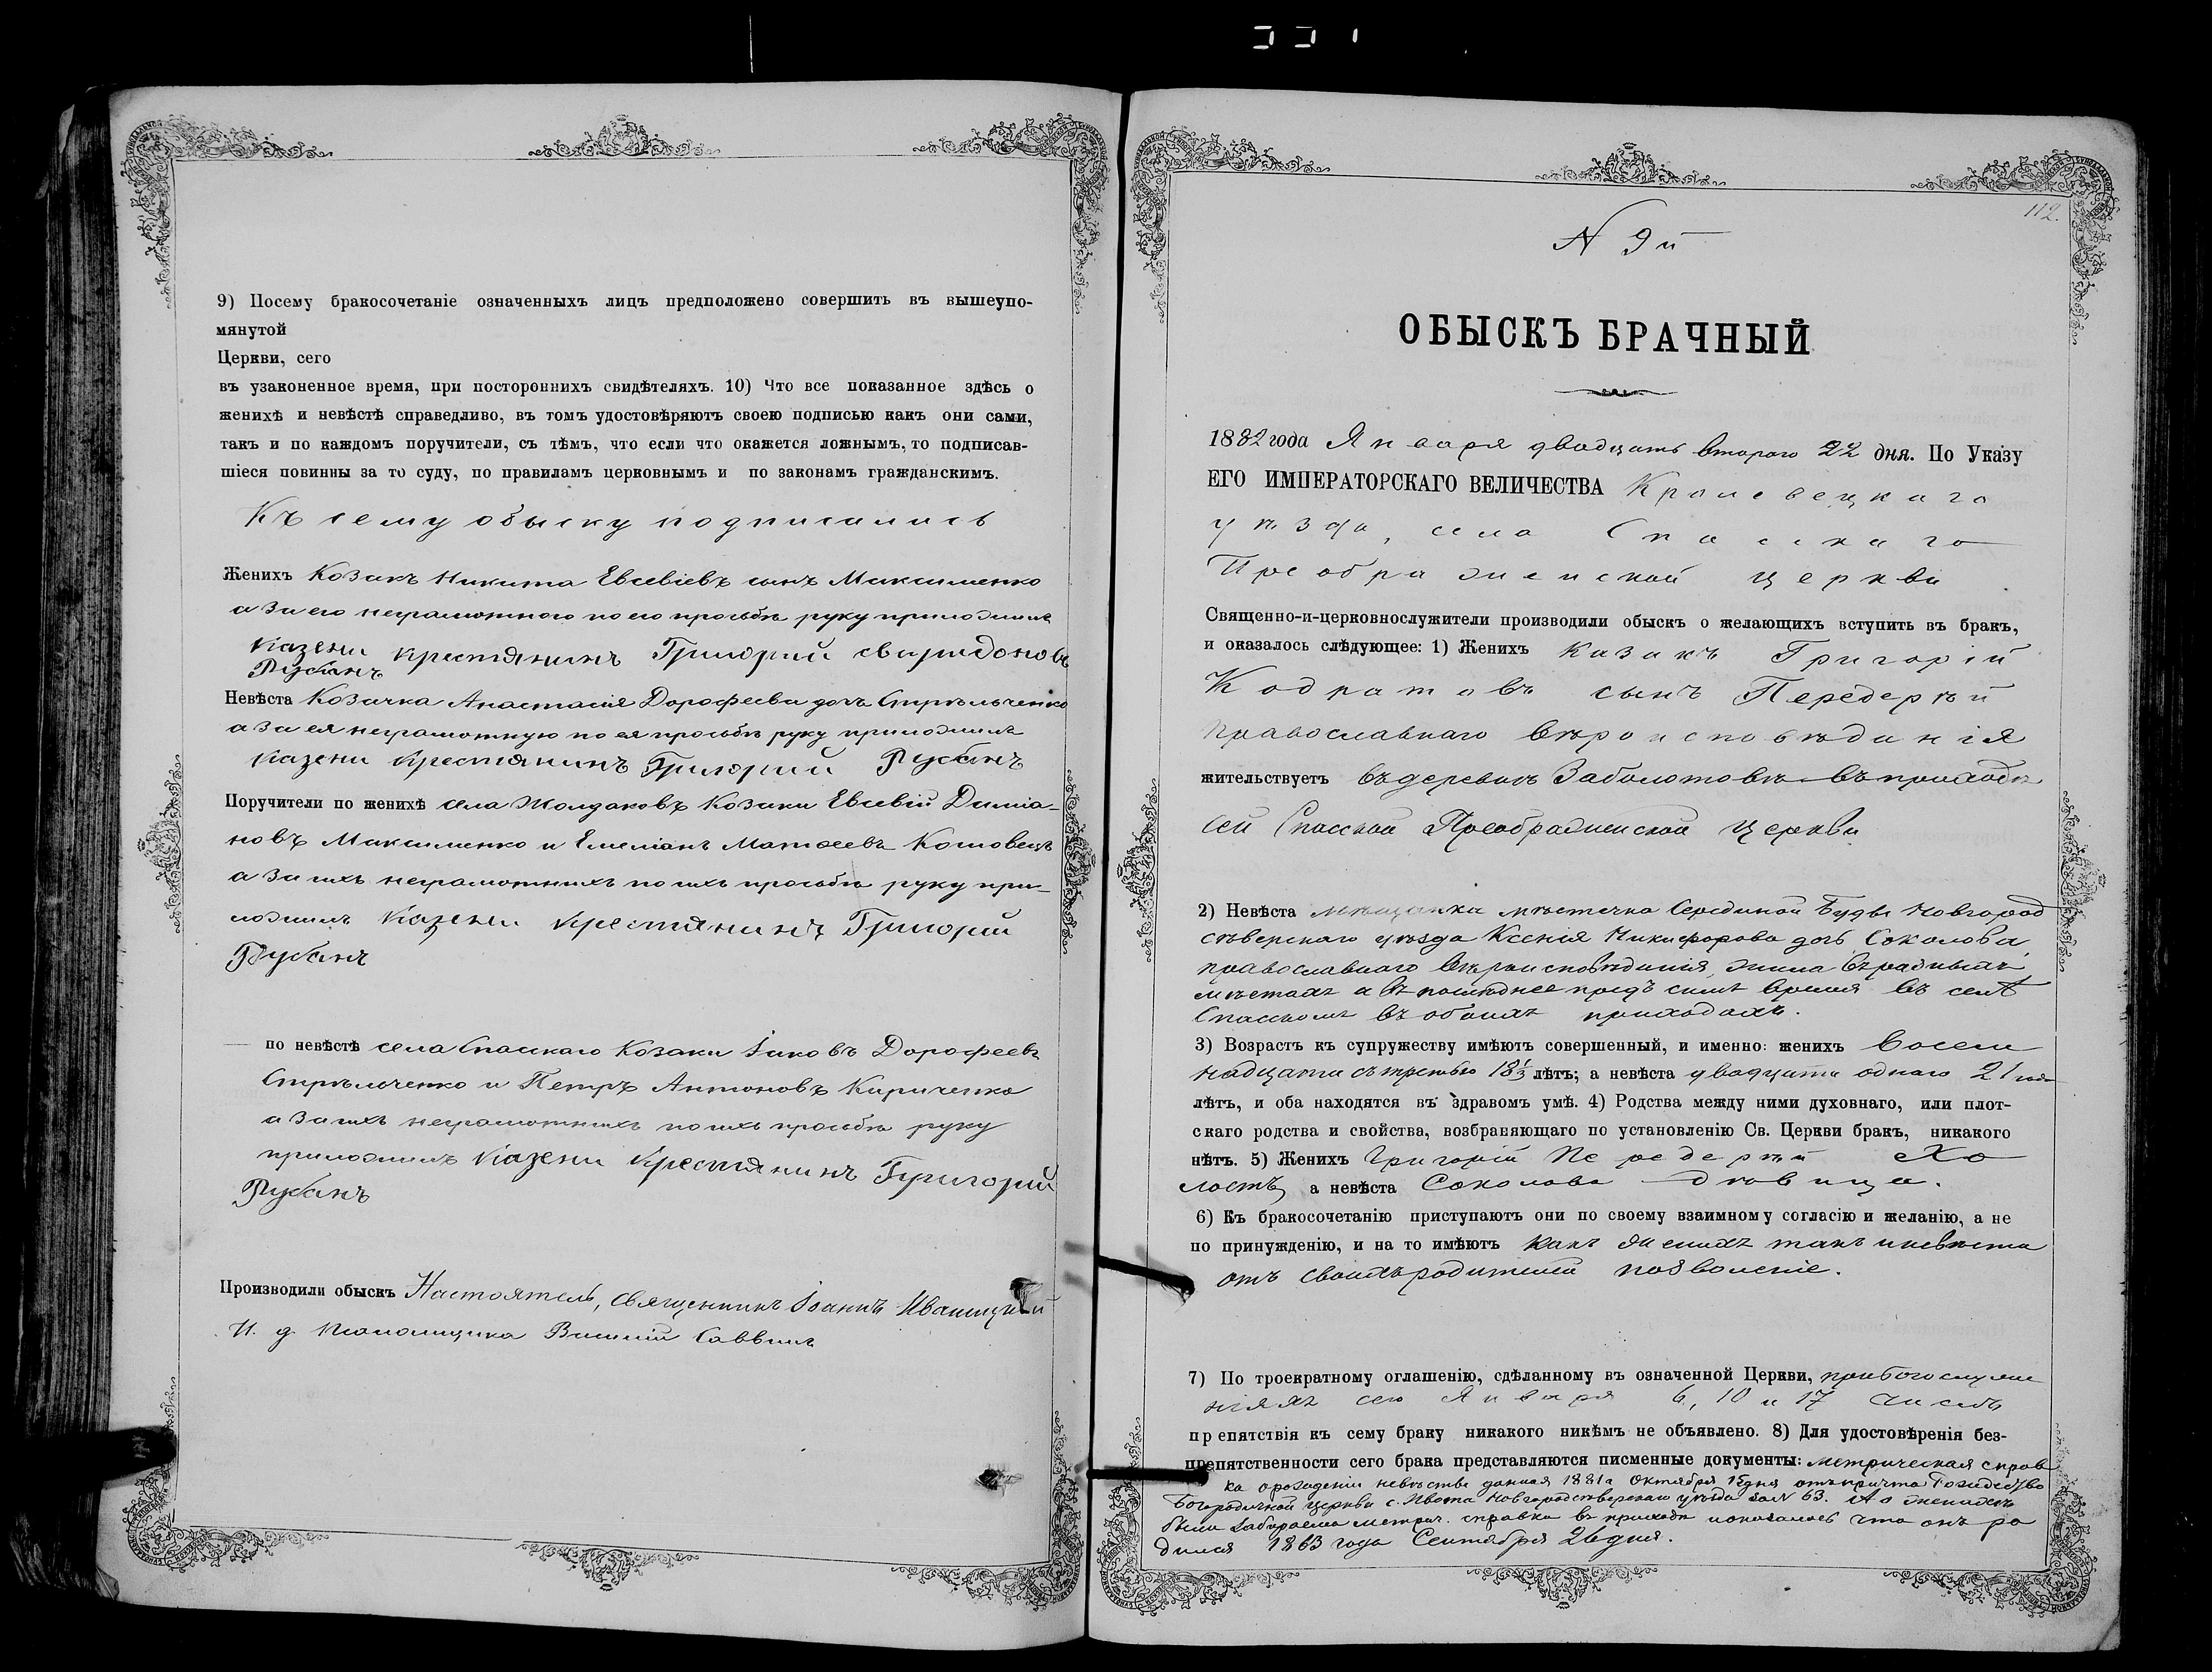 9) Посему бракосочетаніе означенныхъ лицъ предположено совершить въ вышеупо-
мянутой
Церкви, сего
въ узаконенное время, при постороннихъ свидѣтеляхъ. 10) Что все показанное здѣсь о
женихѣ и невѣстѣ справедливо, въ томъ удостовѣряютъ своею подписью какъ они сами,
такъ и по каждомъ поручители, съ тѣмъ, что если что окажется ложнымъ, то подписав-
шіеся повинны за то суду, по правиламъ церковнымъ и по законамъ гражданскимъ.
Къ сему обыску подписались
Женихъ Козакъ Никита Евсевіевъ сынъ Максименко
а за его неграмотного по его прозьбѣ руку приложилъ
казени крестянинъ Григорий свиридоновъ
Рубанъ
Невѣста Козачка Анастасія Дорофеева дочь Стрѣльченко
а за ея неграмотную по ея прозьбѣ руку приложилъ
казени крестянинъ Григорий Рубанъ
Поручители по женихѣ села Жолдаковъ Козаки Евсевій Диміа-
новъ Максименко и Емеліанъ Матѳеевъ Котовецъ
а за ихъ неграмотныхъ по ихъ прозьбѣ руку при-
ложилъ казени крестянинъ Григорий
Рубанъ
по невѣстѣ села Спаскаго Козаки Іаковъ Дорофеевъ
Стрѣльченко и Петръ Антоновъ Кириченко
а за ихъ неграмотныхъ по ихъ прозьбѣ руку
приложилъ казени крестянинъ Григорий
Рубанъ
Производили обыскъ Настоятель, священникъ Іоаннъ
И. д. псаломщика Василій Саввинъ
112.
N 9й
ОБЫСКЪ БРАЧНЫЙ
1882 года Января двадцать втораго 22 дня. По Указу
ЕГО ИМПЕРАТОРСКАГО ВЕЛИЧЕСТВА Кролевецкаго
уѣзда, села Спасскаго
Преображенской церкви
Священно-и-церковнослужители производили обыскъ о желающихъ вступить въ бракъ,
и оказалось слѣдующее: 1) Женихъ Казакъ Григорій
Кодратовъ сынъ Передерѣй
православнаго вѣроисповѣданія
жительствуетъ въ деревнѣ Заболотовѣ въ приходѣ
сей Спасской Преображенской церкви
2) Невѣста мѣщанка мѣстечка Серединой Буды Новгород
сѣверскаго уѣзда Ксенія Никифорова дочь Соколова
православнаго вѣроисповѣданія, жила въ разныхъ
мѣстахъ а въ послѣднее предъ симъ время въ селѣ
Спасскомъ въ обоихъ приходахъ.
3) Возрастъ къ супружеству имѣютъ совершенный, и именно: женихъ восем
надцати съ третью 18⅓ лѣтъ; а невѣста двадцати одного 21 года
лѣтъ, и оба находятся въ здравомъ умѣ. 4) Родства между ними духовнаго, или плот-
скаго родства и свойства, возбраняющаго по установленію Св. Церкви бракъ, никакого
нѣтъ. 5) Женихъ Григорій Передерѣй Хо
лостъ, а невѣста Соколова дѣвица.
6) Къ бракосочетанію приступаютъ они по своему взаимному согласію и желанію, а не
по принужденію, и на то имѣютъ какъ женихъ такъ и невѣста
отъ своихъ родителей позволеніе.
7) По троекратному оглашенію, сдѣланному въ означенной Церкви, при богослуже
ніяхъ сего Января 6, 10 и 17 числъ
препятствія къ сему браку никакого никѣмъ не объявлено. 8) Для удостовѣренія без-
препятственности сего брака представляются писменные документы: метрическая справ
ка о рожденіи невѣсты данная 1881 г. Октября 15 дня отъ причта Рождество
Богородичной церкви с. Ивота Новгородсѣверскаго уѣзда за N 63. А о женихѣ
была забираема метрич. справка въ приходѣ и показалось что онъ ро
дился 1863 года Сентября 26 дня.